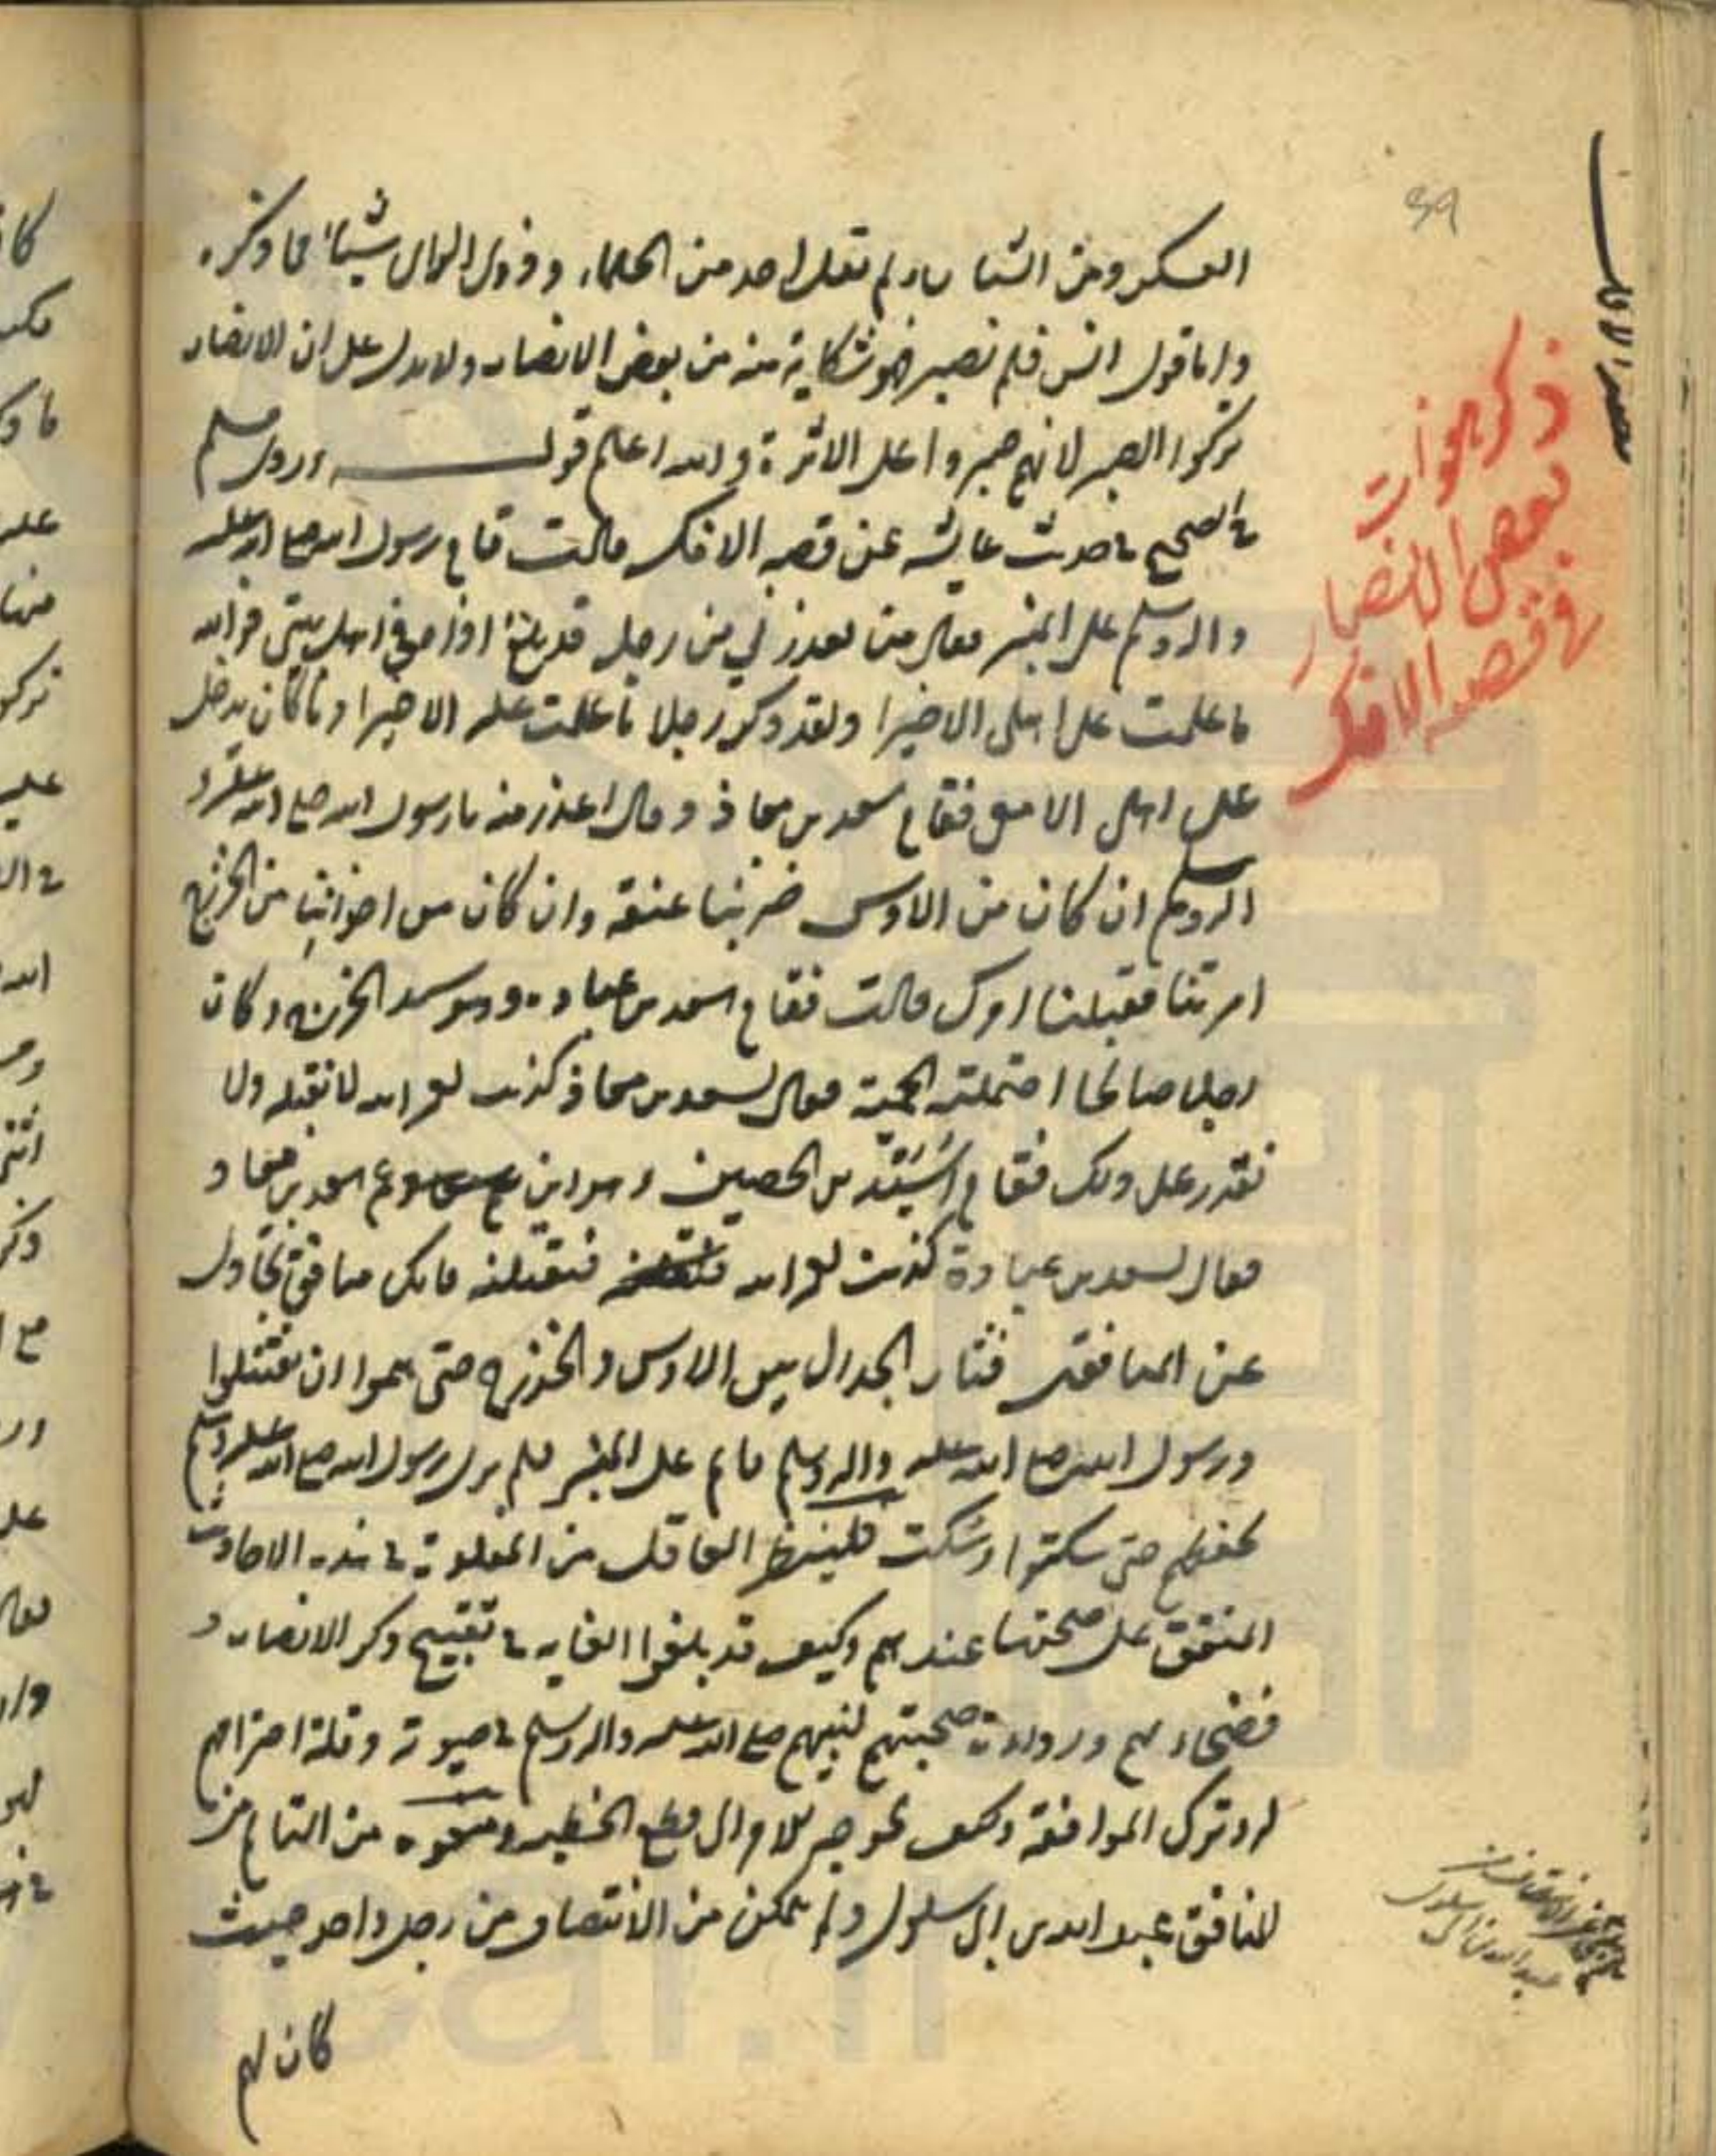 39
العسكر ومن الشاب ولم نقل احد من الحلماء وذوي الراي شيئا مما ذكره
واما قول انس فلم نصبر فهو شكاية منه من بعض الانصار ولا يدل على ان الانصار
تركوا الصبر لانهم صبروا على الاثرة والله اعلم قوله وروى مسلم
في الصحيح في حديث عايشه عن قصه الافك قالت قام رسول الله صلى الله عليه
واله وسلم على المنبر فقال من يعذرني من رجل قد بلغ اذاه في اهل بيتي فوالله
ما علمت على اهلي الا خيرا ولقد ذكروا رجلا ما علمت عليه الا خيرا وما كان يدخل
على اهلي الا معي فقام سعد بن معاذ وقال اعذر منه يا رسول الله صلى الله عليه و
اله وسلم ان كان من الاوس ضربنا عنقه وان كان من اخواننا من الخزرج
امرتنا فقبلنا امرك قالت فقام سعد بن عباده وهو سيد الخزرج وكان
رجلا صالحا احتملته الحمية فقال لسعد بن معاذ كذبت لعمر الله لا تقتله ولا
تقدر على ذلك فقام اسيد بن الحصين وهو ابن عم سعد بن معاذ
فقال لسعد بن عبادة كذبت لعمر الله فنقتلنه فانك منافق تجادل
عن المنافقين فثار الجدال بين الاوس والخزرج حتى هموا ان يقتتلوا
ورسول الله صلى الله عليه واله وسلم قايم على المنبر فلم يزل رسول الله صلى الله عليه وسلم
يخفضهم حتى سكتوا وسكت فلينظر العاقل من المقلوبة في هذه الاحاديث
المتفق على صحتها عندهم وكيف قد بلغوا الغايه في تقبيح ذكر الانصار و
فضحاءهم ورداءة صحبتهم لنبيهم صلى الله عليه واله وسلم في حيوته وقلة احترامهم
له وترك الموافقة وكيف تحوجه للاوال قطع الخطبه ومنعوه من التمام من
المنافق عبد الله بن ابي سلول ولم يتمكن من الانتصاف من رجل واحد حيث
كان لهم
ذكر جوابات
بعض الانصار
في قصه الافك
قصه الافك
عبد الله بن ابي سلول